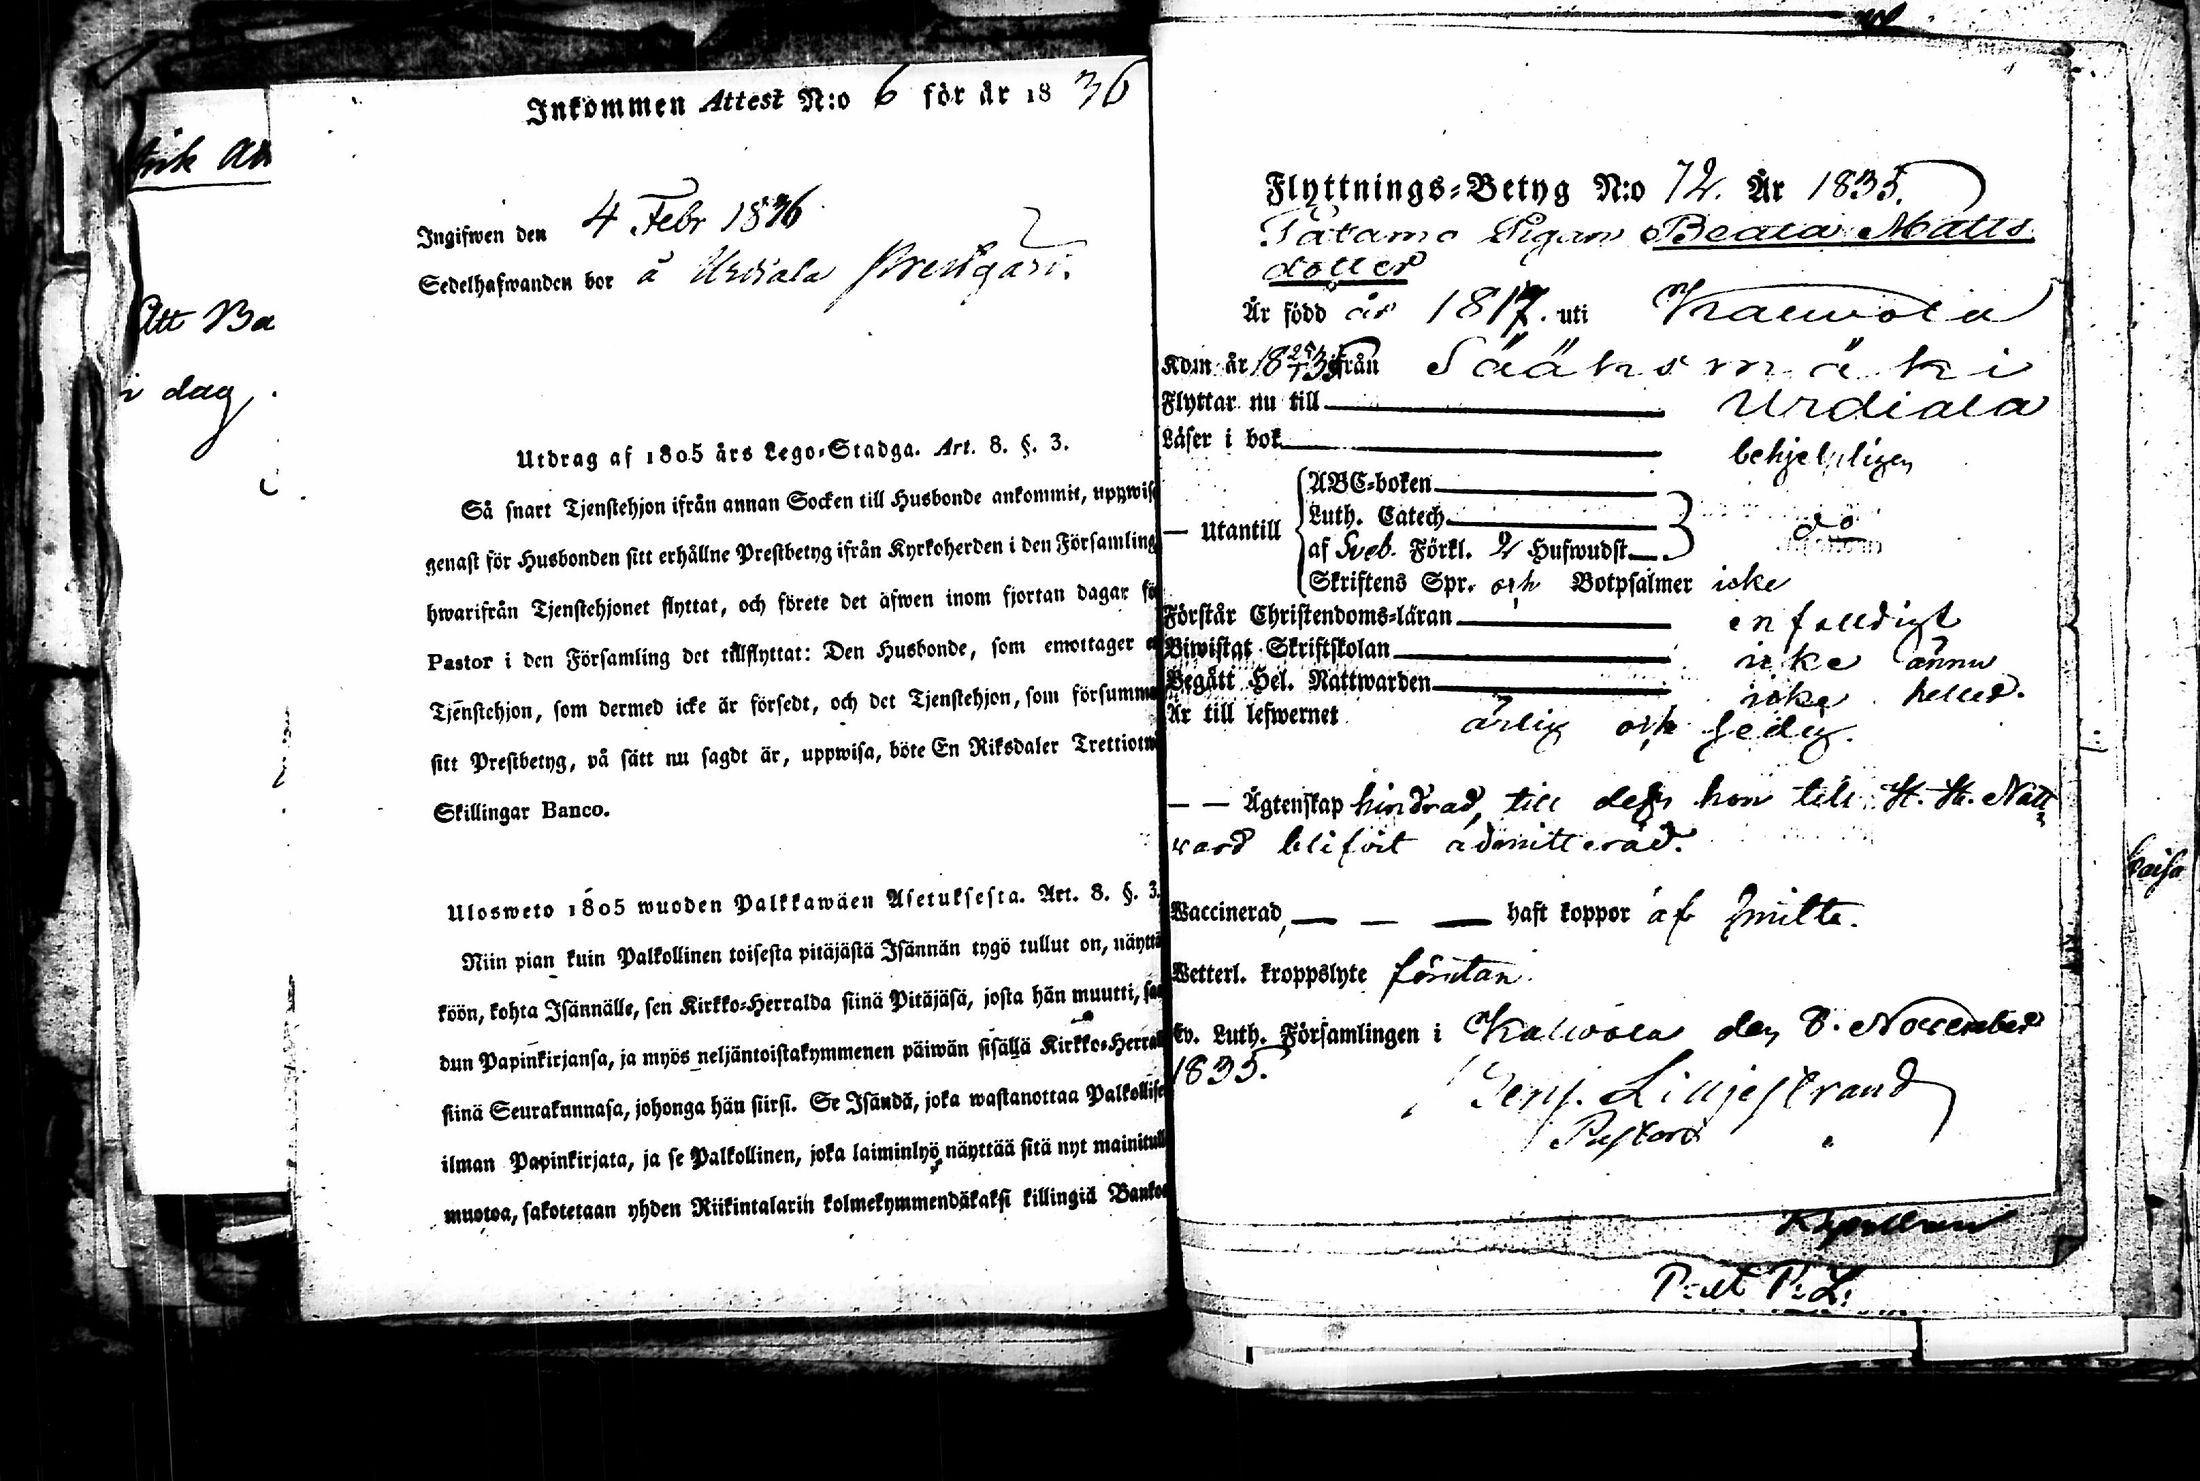 Inkommen Attest N:o 6 för år 1836
Ingifwen den 4 Febr 1836
Sedelhafwanden bor å Urdiala Prestgård.
Utdrag af 1805 års Lego-Stadga. Art. 8. §. 3.
Så snart Tjenstehjon ifrån annan Socken till Husbonde ankommit, uppwise
genast för Husbonden sitt erhållne Prestbetyg ifrån Kyrkoherden i den Församling
hwarifrån Tjenstehjonet flyttat, och förete det äfwen inom fjortan dagar fö
Pastor i den Församling det tillflyttat: Den Husbonde, som emottager
Tjenstehjon, som dermed icke är försedt, och det Tjenstehjon, som försumma
sitt Prestbetyg, på sätt nu sagdt är, uppwisa, böte En Riksdaler Trettiotw
Skillingar Banco.
Ulosweto 1805 wuoden Palkkawäen Asetuksesta. Art. 8. §. 3.
Niin pian kuin Palkollinen toisesta pitäjästä Isännän tygö tullut on, näyttä
köön, kohta Isännälle, sen Kirkko-Herralda siinä Pitäjäsä, josta hän muutti, saa
dun Papinkirjansa, ja myös neljäntoistakymmenen päiwän sisällä Kirkko-Herral
siinä Seurakunnasa, johonga hän siirsi. Se Isändä, joka wastanottaa Palkollise
ilman Papinkirjata, ja se Palkollinen, joka laiminlyö näyttää sitä nyt mainitulla
muotoa, sakotetaan yhden Riikintalarin kolmekymmendäkaksi killingiä Bankos
Att Ba
i dag
Flyttnings-Betyg N:o 72. År 1835.
Pigan Beata Matts
dotter
År född år 1817. uti Kalwola
Kom år 1835 ifrån Sääksmäki
Flyttar nu till Urdiala
Läser i bok behjelpligen
— Utantill
ABC-boken
Luth. Catech.
af Sveb. Förkl. 2 Hufwudst. do
Skriftens Spr. och Botpsalmer icke
Förstår Christendoms-läran enfaldigt
Biwistat Skriftskolan icke ännu
Begått Hel. Nattwarden icke heller.
Är till lefwernet ärlig och sedig.
— — Ägtenskap hindrad, till dess hon till H. H. Natt
vard blifvit admitterad.
Waccinerad, — — — haft koppor af smitta.
Wetterl. kroppslyte förutan.
Ev. Luth. Församlingen i Kalwola den 8. November
1835.
Benj. Lilljestrand
Pastor
Kapellan
P:st P:L: